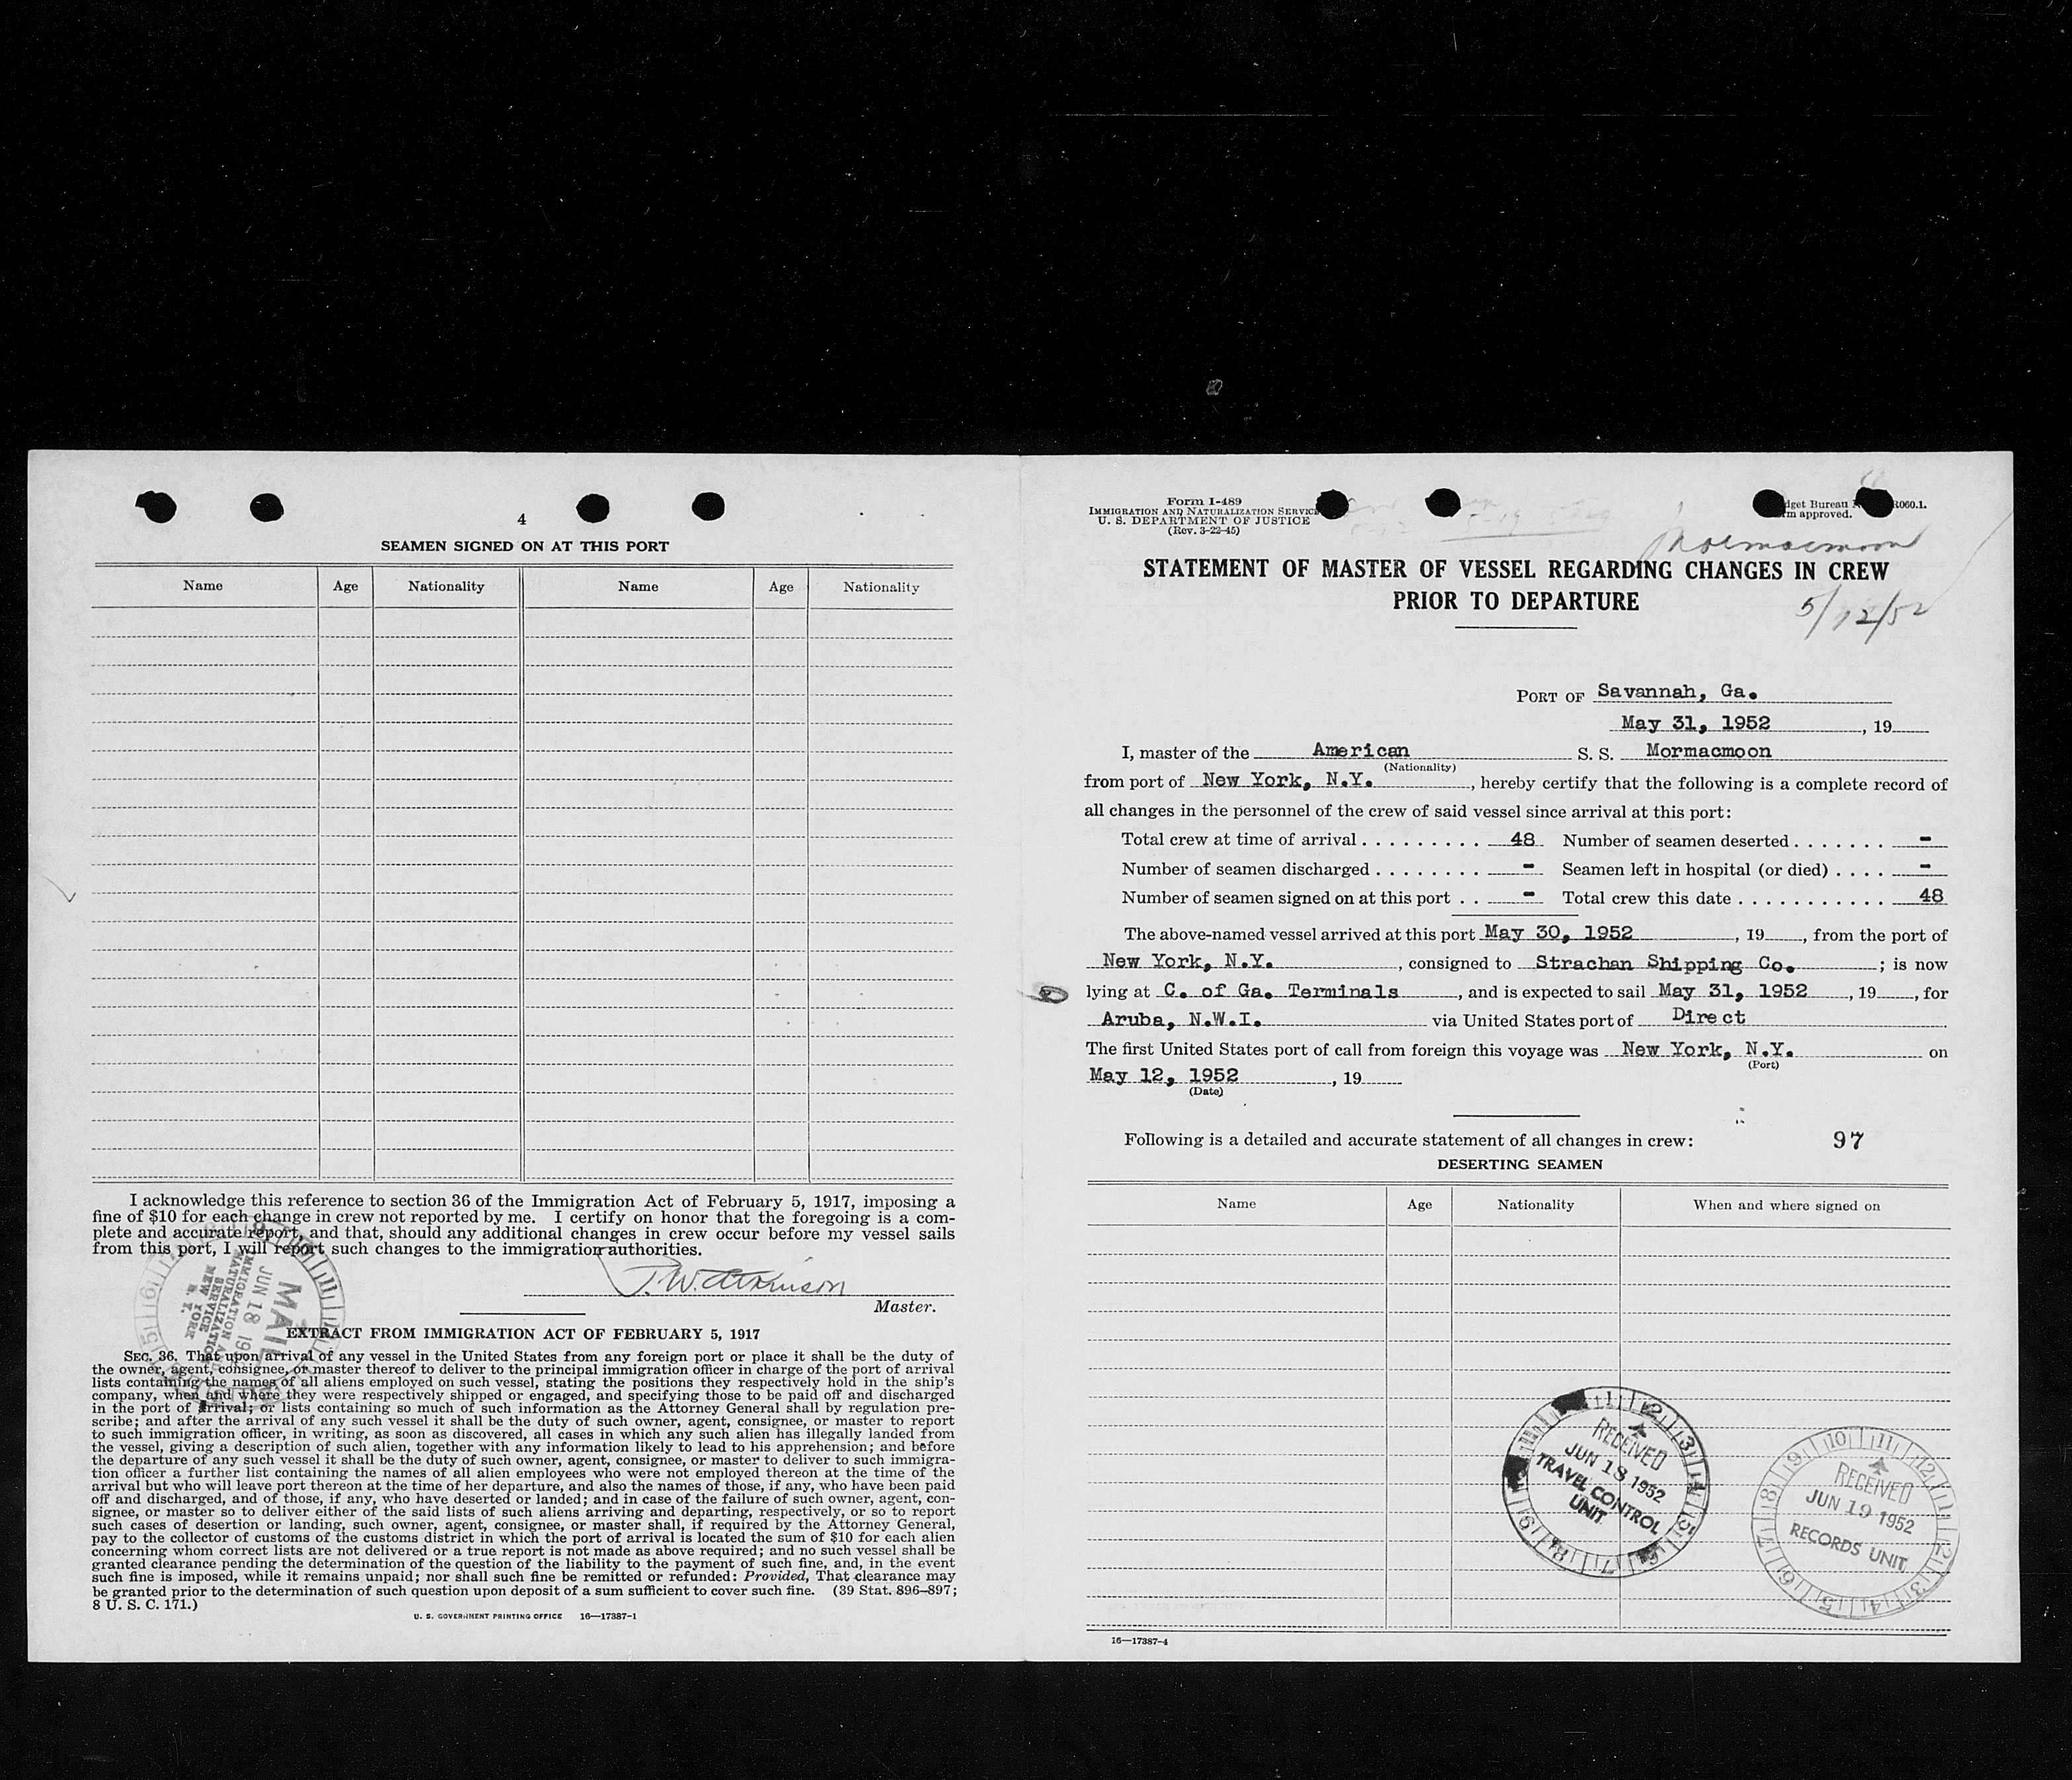 4
SEAMEN SIGNED ON AT THIS PORT
Name Age Nationality Name Age Nationality
I acknowledge this reference to section 36 of the Immigration Act of February 5, 1917, imposing a
fine of $10 for each change in crew not reported by me. I certify on honor that the foregoing is a com-
plete and accurate report, and that, should any additional changes in crew occur before my vessel sails
from this port, I will report such changes to the immigration authorities.
J. W. Atkinson
Master.
MAIL
JUN 18
IMMIGRATION AND
NATURALIZATION
SERVICE
NEW YORK
N. Y.
EXTRACT FROM IMMIGRATION ACT OF FEBRUARY 5, 1917
SEC. 36. That upon arrival of any vessel in the United States from any foreign port or place it shall be the duty of
the owner, agent, consignee, or master thereof to deliver to the principal immigration officer in charge of the port of arrival
lists containing the names of all aliens employed on such vessel, stating the positions they respectively hold in the ship's
company, when and where they were respectively shipped or engaged, and specifying those to be paid off and discharged
in the port of arrival; or lists containing so much of such information as the Attorney General shall by regulation pre-
scribe; and after the arrival of any such vessel it shall be the duty of such owner, agent, consignee, or master to report
to such immigration officer, in writing, as soon as discovered, all cases in which any such alien has illegally landed from
the vessel, giving a description of such alien, together with any information likely to lead to his apprehension; and before
the departure of any such vessel it shall be the duty of such owner, agent, consignee, or master to deliver to such immigra-
tion officer a further list containing the names of all alien employees who were not employed thereon at the time of the
arrival but who will leave port thereon at the time of her departure, and also the names of those, if any, who have been paid
off and discharged, and of those, if any, who have deserted or landed; and in case of the failure of such owner, agent, con-
signee, or master so to deliver either of the said lists of such aliens arriving and departing, respectively, or so to report
such cases of desertion or landing, such owner, agent, consignee, or master shall, if required by the Attorney General,
pay to the collector of customs of the customs district in which the port of arrival is located the sum of $10 for each alien
concerning whom correct lists are not delivered or a true report is not made as above required; and no such vessel shall be
granted clearance pending the determination of the question of the liability to the payment of such fine, and, in the event
such fine is imposed, while it remains unpaid; nor shall such fine be remitted or refunded: Provided, That clearance may
be granted prior to the determination of such question upon deposit of a sum sufficient to cover such fine. (39 Stat. 896–897;
8 U. S. C. 171.)
U. S. GOVERNMENT PRINTING OFFICE 16—17387-1
Form I-489
IMMIGRATION AND NATURALIZATION SERVICE
U. S. DEPARTMENT OF JUSTICE
(Rev. 3-22-45)
dget Bureau R060.1.
m approved.
Mormacmoon
STATEMENT OF MASTER OF VESSEL REGARDING CHANGES IN CREW
PRIOR TO DEPARTURE
5/12/52
PORT OF Savannah, Ga.
May 31, 1952, 19
I, master of the American S. S. Mormacmoon
(Nationality)
from port of New York, N.Y., hereby certify that the following is a complete record of
all changes in the personnel of the crew of said vessel since arrival at this port:
Total crew at time of arrival . . . . . . . . . 48 Number of seamen deserted . . . . . . . -
Number of seamen discharged . . . . . . . . - Seamen left in hospital (or died) . . . . -
Number of seamen signed on at this port . . - Total crew this date . . . . . . . . . . . 48
The above-named vessel arrived at this port May 30, 1952, 19, from the port of
New York, N.Y., consigned to Strachan Shipping Co.; is now
lying at C. of Ga. Terminals, and is expected to sail May 31, 1952, 19, for
Aruba, N.W.I. via United States port of Direct
The first United States port of call from foreign this voyage was New York, N.Y. on
(Port)
May 12, 1952, 19
(Date)
Following is a detailed and accurate statement of all changes in crew: 97
DESERTING SEAMEN
Name Age Nationality When and where signed on
RECEIVED
JUN 18 1952
TRAVEL CONTROL
UNIT
RECEIVED
JUN 19 1952
RECORDS UNIT
16—17387-4